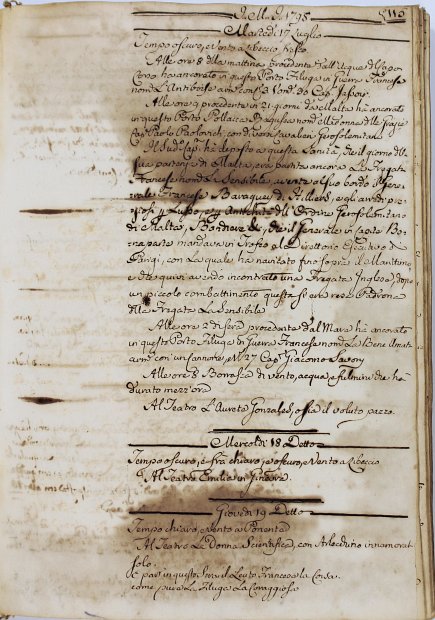 Martedì 17 Luglio
Tempo oscuro, e Vento a libeccio fresco
Alle ore 8 della mattina procedente dall'Acque di Longon
Corso ha ancorato in questo Porto Filuga in Guerra Francese
nom: L'Antibois arm: con
Alle ore 9 procedente in 21 giorni da Malta ha ancorato
in questo Porto Pollacca Ragusea nom: Madonna delle Grazie
Cap: Paolo Radovich, con diversi Cavalieri Gerosolimitani
Il Sud: Cap: ha deposto a questa Sanità, che il giorno della
sua partenza di Malta, era partita ancora la Fregata
Francese nom: La Sensibile, avente al suo bordo il Gene
rale Francese Baraguey di Hilliers, e gli arredi pre
ziosi del Lusso, e dell'Antichità dell'Ordine Gerosolimitano
di Malta, Bandiere &, che il Generale in Capite Bona
parte mandava in Trofeo al Direttorio Esecutivo di
Parigi, con la quale ha navigato fino sopra il Marittimo
e che quivi avendo incontrato una Fregata Inglese, dopo
un piccolo combattimento questa si era resa Padrona
della Fregata La Sensibile
Alle ore 2 di sera procedente dal Mare ha ancorato
in questo Porto Filuga di Guerra Francese nom: La Bene Amata
arm: con un Cannone, e N: 27 Cap: Giacomo Savory
Alle ore 8 Borrasca di vento, acqua, e fulmini che ha
durato mezz'ora
Al Teatro L'Aurora Gonzales, ossia il voluto pazzo.
Mercoledì 18 Detto
Tempo oscuro, e fra chiaro, e oscuro, e Vento a libeccio
Al Teatro Emilia in Ginevra.
Giovedì 19 Detto
Tempo chiaro, e Vento a Ponente
Al Teatro La Donna Scientifica, con Arlecchino innamorat
solo.
È par: in questa sera il Leuto Francese la Corsa.
come pure la Filuga La Coraggiosa